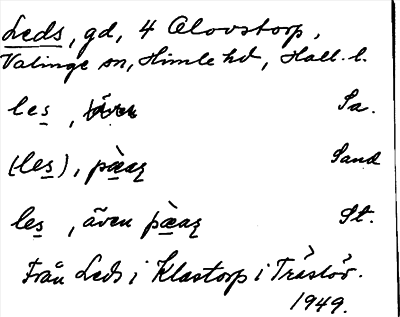 Leds, gd, 4 Olovstorp,
Valinge sn, Himle hd, Hall. l.
les, även Sa.
(les), pàeaʒ Sand
les, även pàeaʒ St.
Från Leds i Klastorp i Träslöv.
1949.